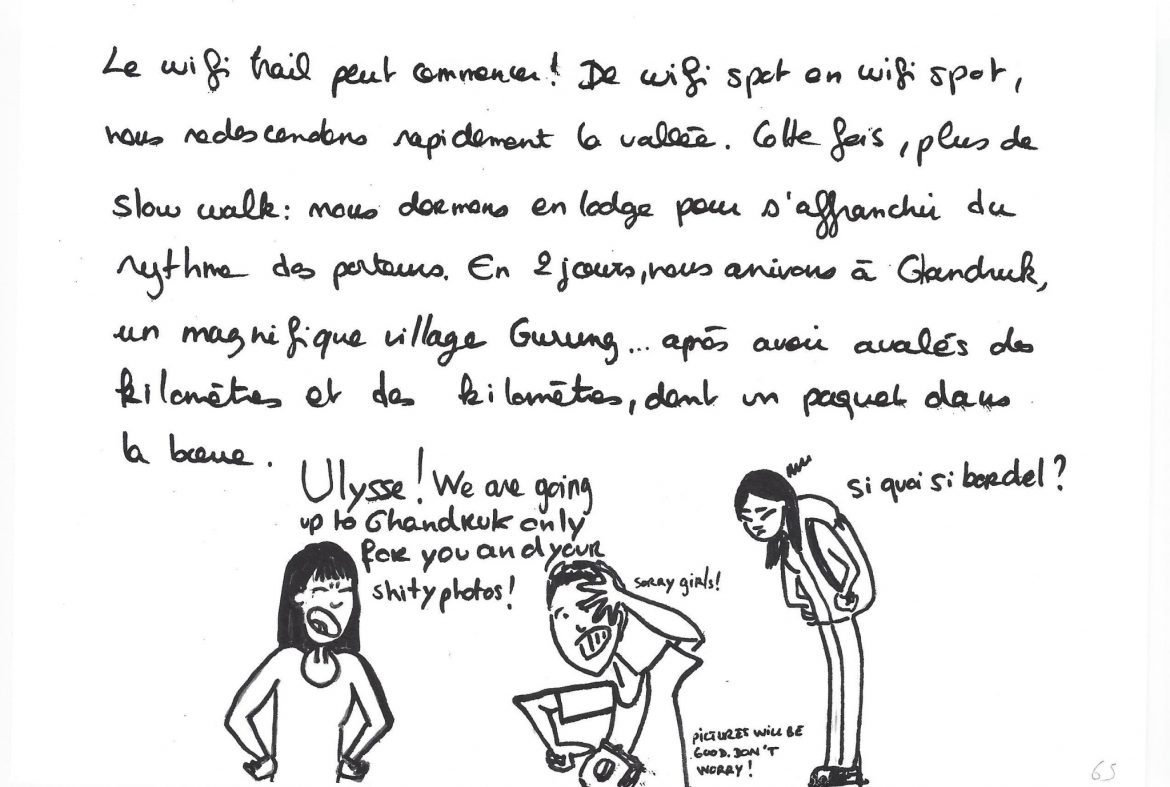 Le wifi trail peut commencer! De wifi spot en wifi spot,
nous redescendons rapidement la vallée. Cette fois, plus de
slow walk: nous dormons en lodge pour s'affranchir du
rythme des porteurs. En 2 jours, nous arrivons à Ghandruk,
un magnifique village Gurung... après avoir avalés des
kilomètres et des kilomètres, dont un paquet dans
la boue.
Ulysse! We are going
up to Ghandruk only
for you and your
shity photos!
sorry girls!
PICTURES WILL BE
GOOD. DON'T
WORRY!
si quoi si bordel?
65